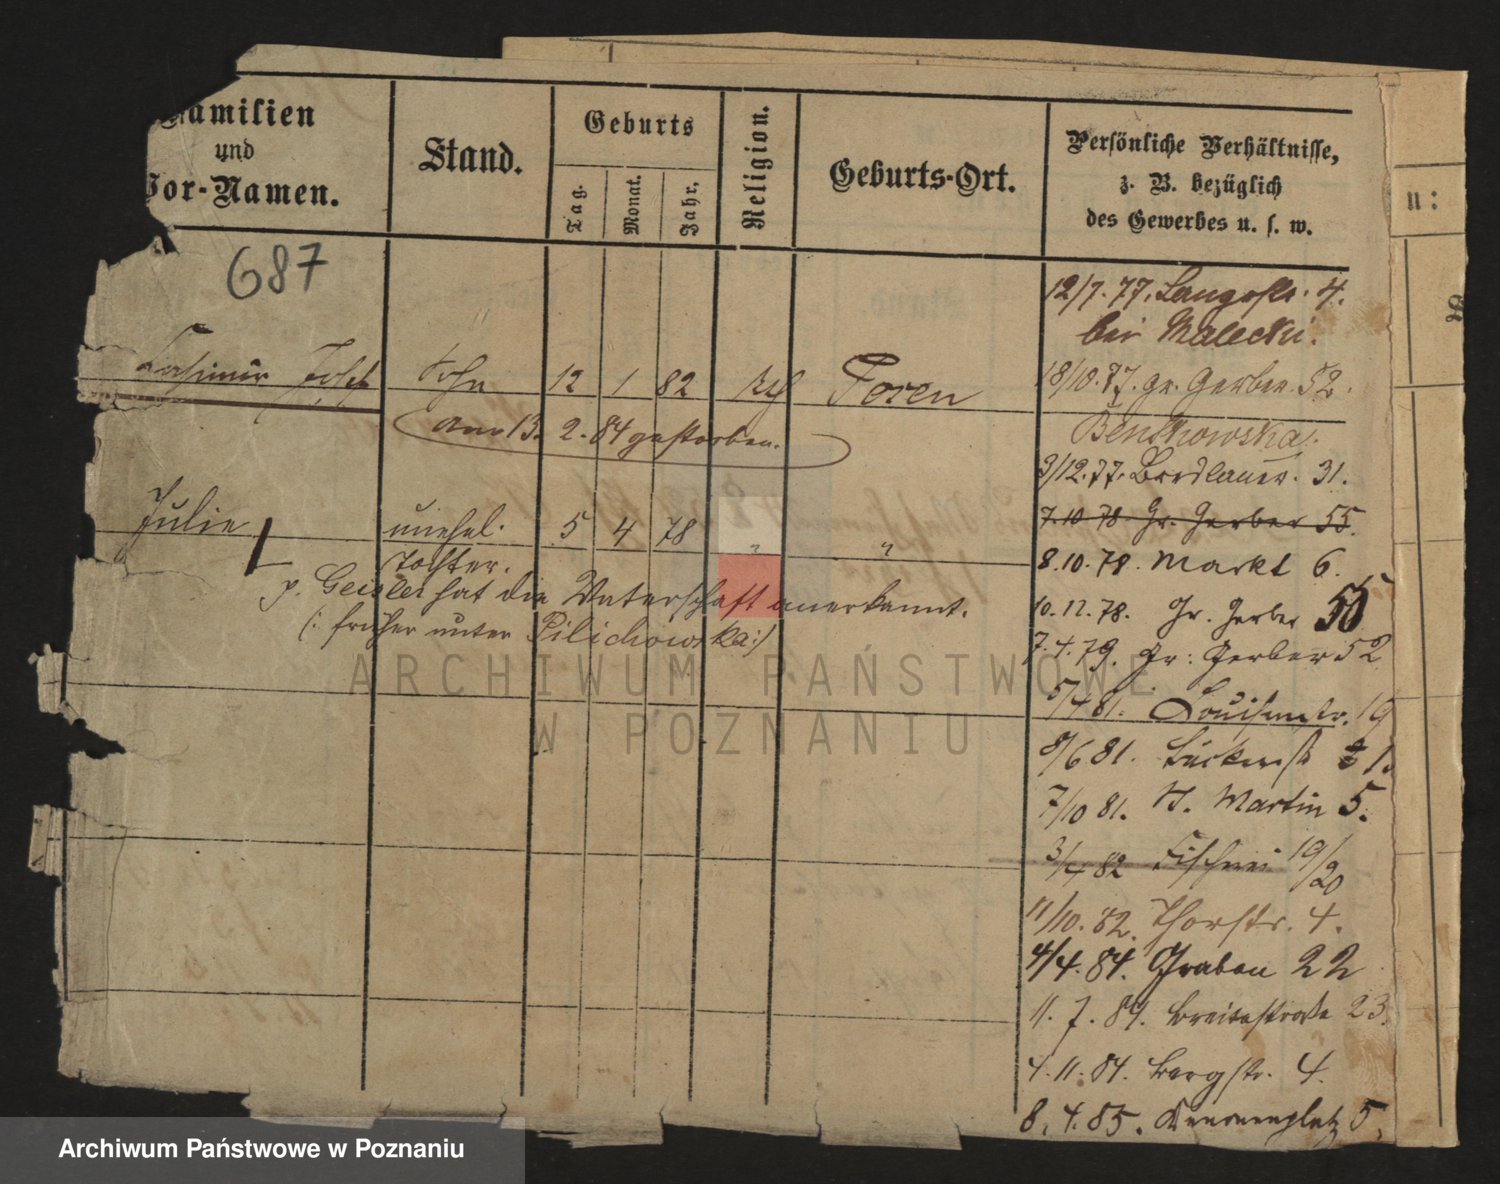 Familien
und
Vor-Namen.
Stand.
Geburts
Tag.
Monat.
Jahr.
Religion.
Geburts-Ort.
Persönliche Verhältnisse,
z. B. bezüglich
des Gewerbes u. s. w.
n:
687
Kasimir Josef Sohn 12 1 82 kth Posen
Am 13. 2. 84 gestorben.
Julie unehel. 5 4 78 " "
Tochter.
p. Geisler hat die Vaterschaft anerkannt.
(: früher unter Pilichowska :)
12/7. 77. Langestr. 4.
bei Malecki.
18/10. 77. gr. Gerber. 52.
Benkowska.
3/12. 77. Breslauer. 31.
7.10 78. Gr. Gerber 55.
8.10. 78. Markt 6.
10. 12. 78. Gr. Gerber 55
7. 4. 79. Gr: Gerber 52
5/4 81. Louisenstr. 19
8/6 81. Bäckerstr 1.
7/10 81. St. Martin 5.
3/4 82 Fischerei 19/20
11/10. 82. Thorstr. 4.
4/4. 84. Graben 22
11. 7. 84. Breitestraße 23.
4. 11. 84. Bergstr. 4.
8. 4. 85. 5.
ARCHIWUM PAŃSTWOWE
W POZNANIU
Archiwum Państwowe w Poznaniu